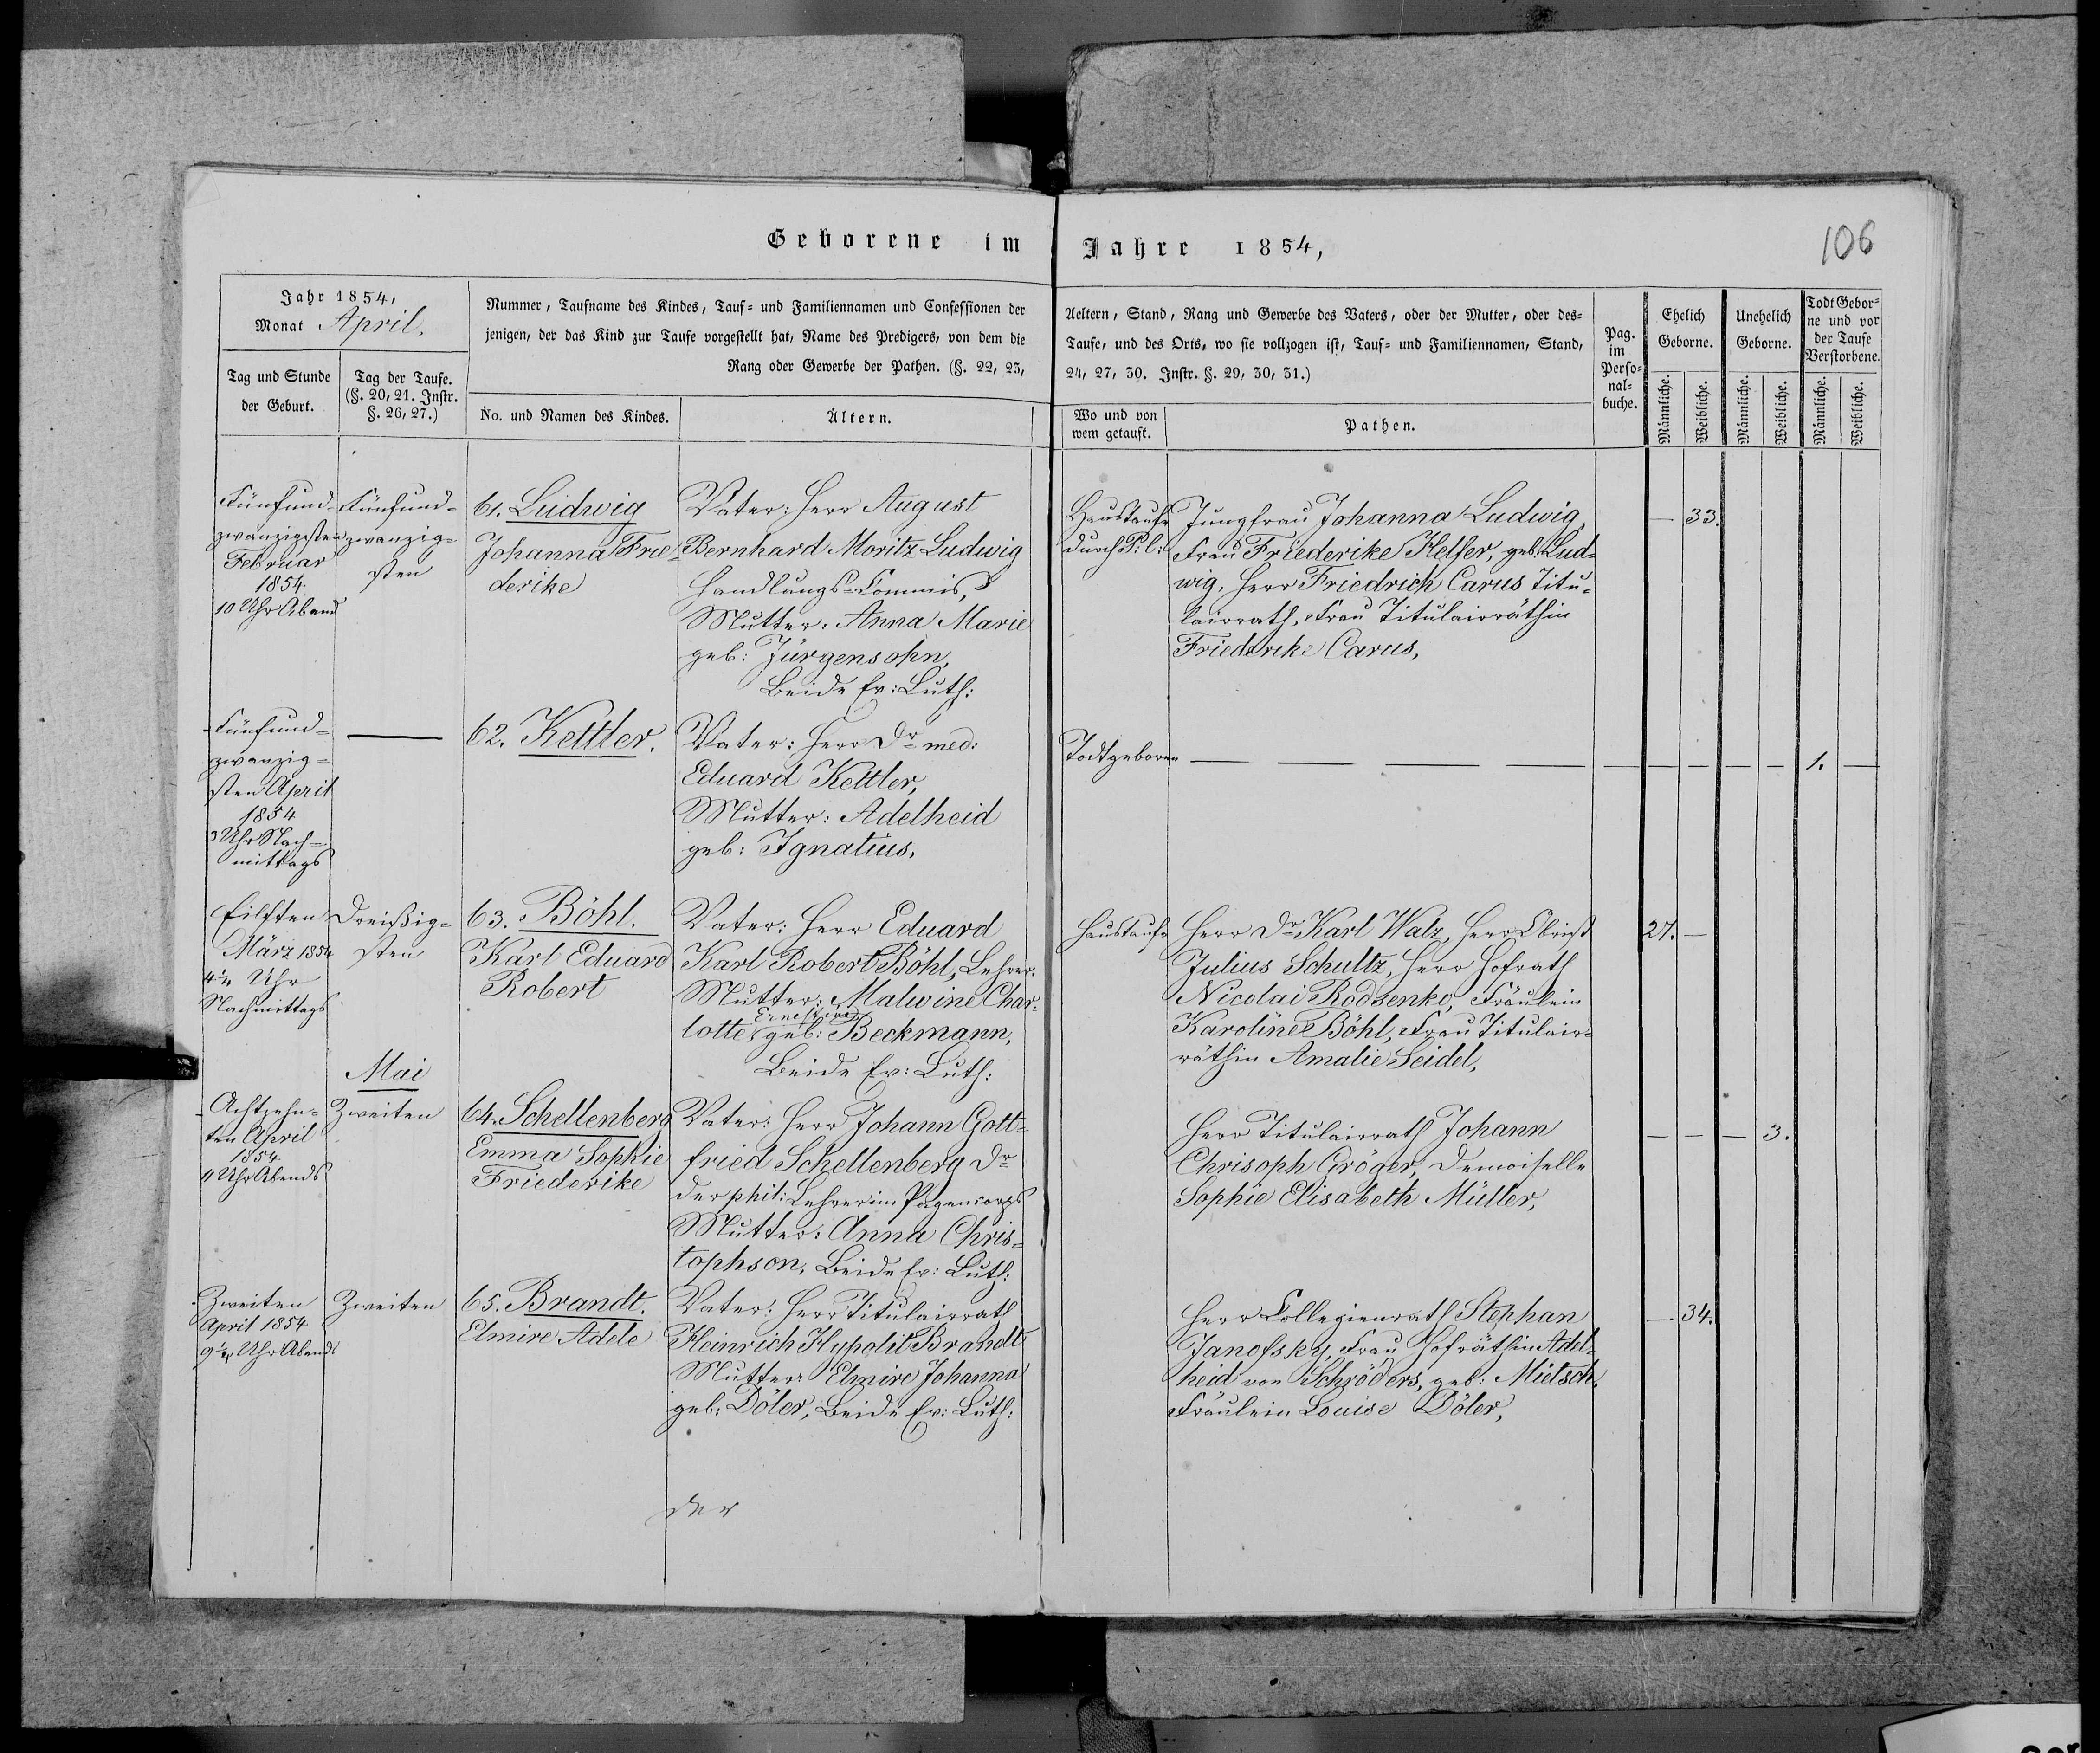 Geborene im Jahre 1854,
106
Jahr 1854,
Monat April.
Tag und Stunde
der Geburt.
Tag der Taufe.
(§. 20, 21. Instr.
§. 26, 27.)
Nummer, Taufname des Kindes, Tauf- und Familiennamen und Confessionen der
jenigen, der das Kind zur Taufe vorgestellt hat, Name des Predigers, von dem die
Rang oder Gewerbe der Pathen. (§. 22, 23,
No. und Namen des Kindes.
Ältern.
Aeltern, Stand, Rang und Gewerbe des Vaters, oder der Mutter, oder des-
Taufe, und des Orts, wo sie vollzogen ist, Tauf- und Familiennamen, Stand,
24, 27, 30. Instr. §. 29, 30, 31.)
Wo und von
wem getauft.
Pathen.
Pag.
im
Perso-
nal-
buche.
Ehelich
Geborne.
Männliche.
Weibliche.
Unehelich
Geborne.
Männliche.
Weibliche.
Todt Gebor-
ne und vor
der Taufe
Verstorbene.
Männliche.
Weibliche.
Fünfund-
zwanzigsten
Februar
1854.
10 Uhr Abend
Fünfund-
zwanzig-
sten
61. Ludwig
Johanna Frie-
derike
Vater: Herr August
Bernhard Moritz Ludwig
Handlungs-Commis,
Mutter: Anna Marie
geb: Jürgensohn,
Beide Ev: Luth:
Haustaufe
durch P: l:
Jungfrau Johanna Ludwig,
Frau Friederike Helfer, geb: Lud-
wig, Herr Friedrich Carus Titu-
lairrath, Frau Titulairräthin
Friederike Carus,
— 33.
Fünfund-
zwanzig-
sten April
1854
3 Uhr Nach-
mittags
—
62. Kettler.
Vater: Herr Dr med:
Eduard Kettler,
Mutter: Adelheid
geb: Ignatius,
Todtgeboren — — — — — — — — — 1. —
Eilften
März 1854
4 1/4 Uhr
Nachmittags
Dreißig-
sten
63. Böhl.
Karl Eduard
Robert
Vater: Herr Eduard
Karl Robert Böhl, Lehrer.
Mutter: Malwine Char-
Ernestine
lotte, geb: Beckmann,
Beide Ev: Luth:
Haustaufe
Herr Dr Karl Walz, Herr Obrist
Julius Schultz, Herr Hofrath
Nicolai Rodsenko, Fräulein
Karoline Böhl, Frau Titulair-
räthin Amalie Seidel,
27. —
Mai
Achtzehn-
ten April
1854
11 Uhr Abends
Zweiten
64. Schellenberg
Emma Sophie
Friederike
Vater: Herr Johann Gott-
fried Schellenberg Dr
der phil: Lehrer im Pagencorps
Mutter: Anna Chris-
tophson, Beide Ev: Luth:
Herr Titulairrath Johann
Chrisoph Gröger, Demoiselle
Sophie Elisabeth Müller,
— — — 3.
Zweiten
April 1854
9 1/4 Uhr Abends
Zweiten
65. Brandt.
Elmire Adele
Vater: Herr Titulairrath
Heinrich Hypolit Brandt
Mutter: Elmire Johanna
geb: Döler, Beide Ev: Luth:
Herr Collegienrath Stephan
Janofsky, Frau Hofräthin Adel-
heid von Schröders, geb: Mietsch,
Fräulein Louise Döler,
— 34.
der